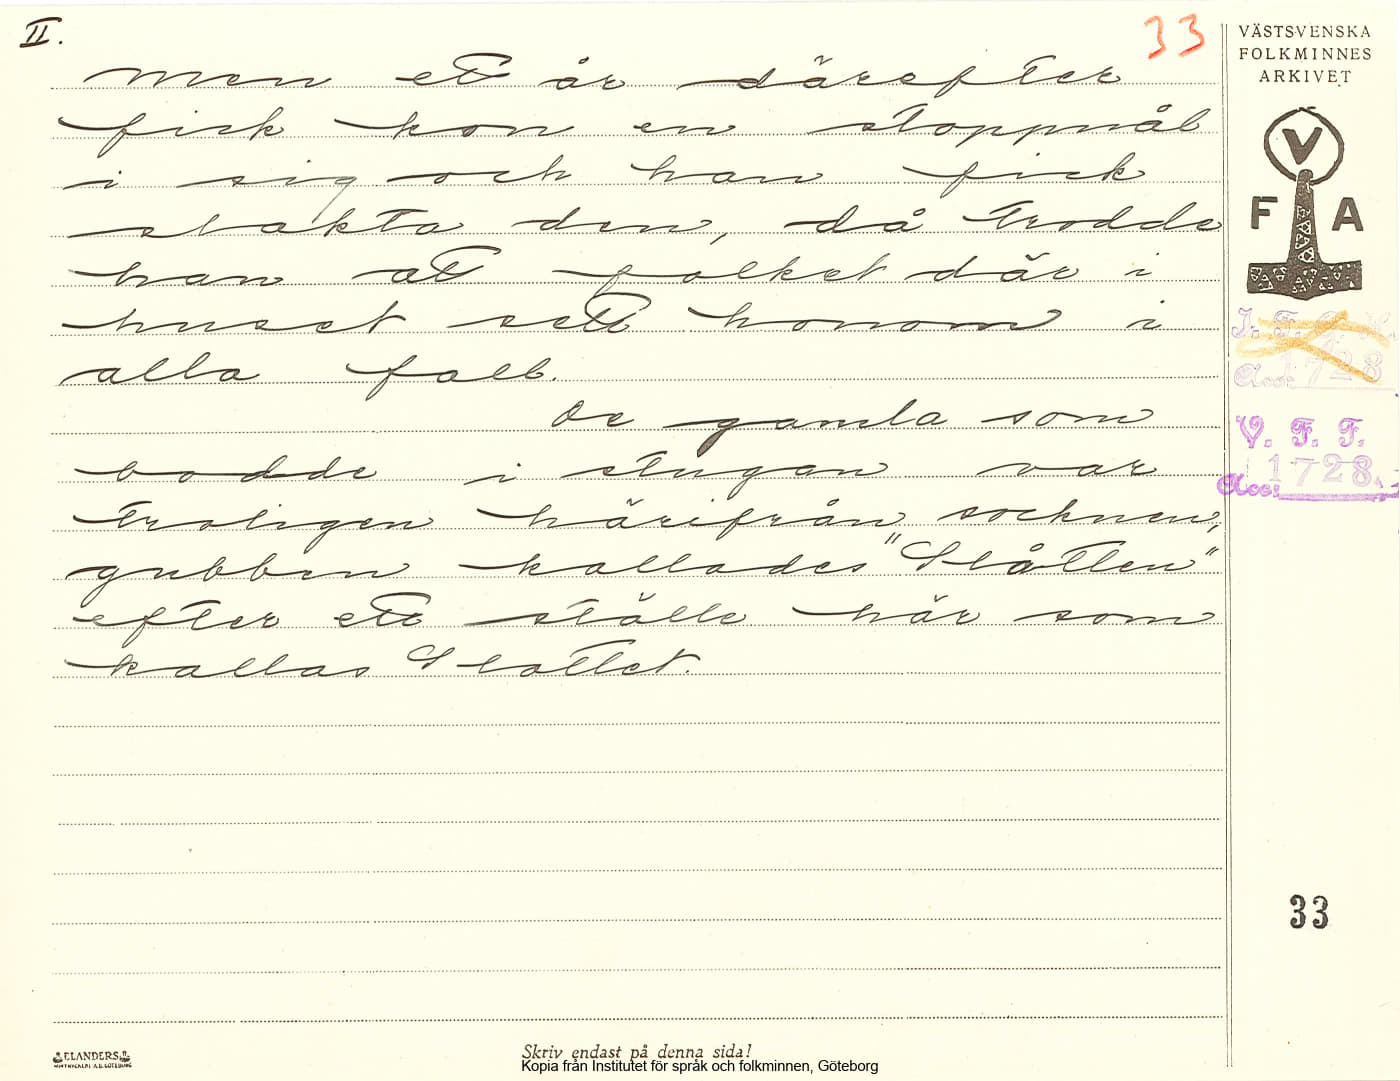 II.
33
men ett år därefter
fick kon en stoppnål
i sig och han fick
slakta den, då trodde
han att folket där i
huset sett honom i
alla fall.
De gamla som
bodde i stugan var
troligen härifrån socknen,
gubben kallades "Slåtten"
efter ett ställe här som
kallas Slottet.
VÄSTSVENSKA
FOLKMINNES
ARKIVET
V
F A
1728
V. F. F.
Acc: 1728.
33
ELANDERS
Skriv endast på denna sida!
Kopia från Institutet för språk och folkminnen, Göteborg